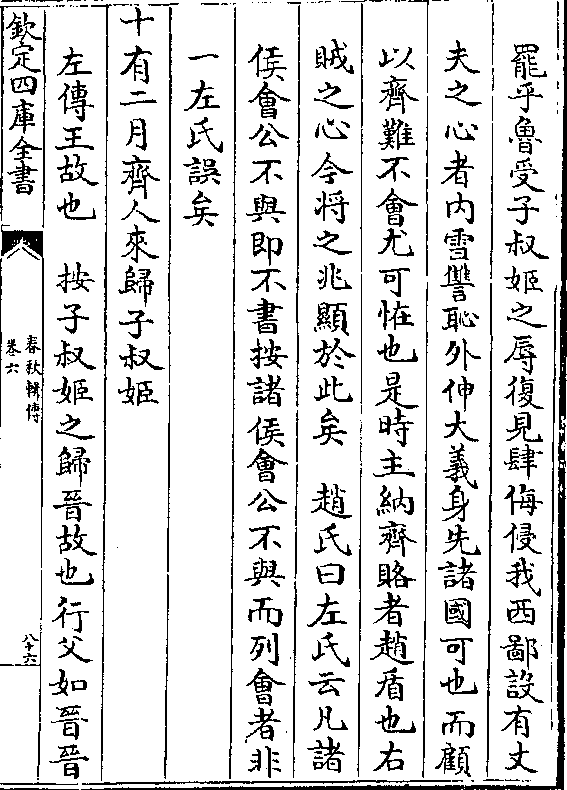 罷乎魯受子叔姬之辱復見肆侮侵我西鄙設有丈
夫之心者内雪讐恥外伸大義身先諸國可也而顧
以齊難不會尤可恠也是時主納齊賂者趙盾也右
賊之心今将之兆顯於此矣　趙氏曰左氏云凡諸
侯會公不與即不書按諸侯會公不與而列會者非
一左氏誤矣
十有二月齊人來歸子叔姬
左傳王故也　按子叔姬之歸晉故也行父如晉晉
欽定四庫全書
春秋輯傳
卷六
八十六